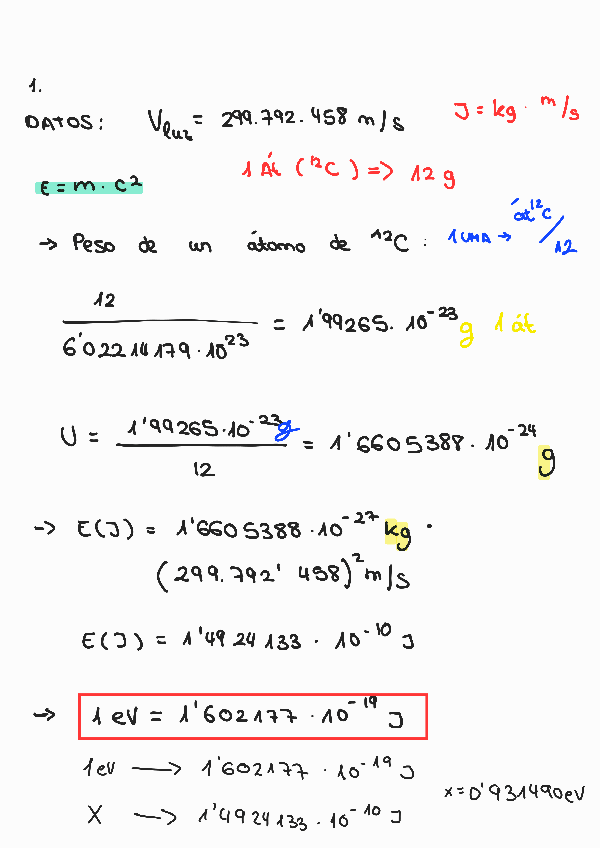 1.
DATOS: Vluz = 299.792.458 m/s J = kg · m/s
1 Át (¹²C) => 12 g
E = m · c²
→ Peso de un átomo de ¹²C : 1 UMA → át¹²C/12
12
6'02214179·10²³ = 1'99265·10⁻²³ g 1 át
U = 1'99265·10⁻²³g / 12 = 1'6605388·10⁻²⁴ g
→ E(J) = 1'6605388·10⁻²⁷ kg ·
(299.792'458)² m/s
E(J) = 1'4924133 · 10⁻¹⁰ J
→ 1 eV = 1'602177 · 10⁻¹⁹ J
1eV → 1'602177 · 10⁻¹⁹ J
X → 1'4924133 · 10⁻¹⁰ J x = 0'931490eV